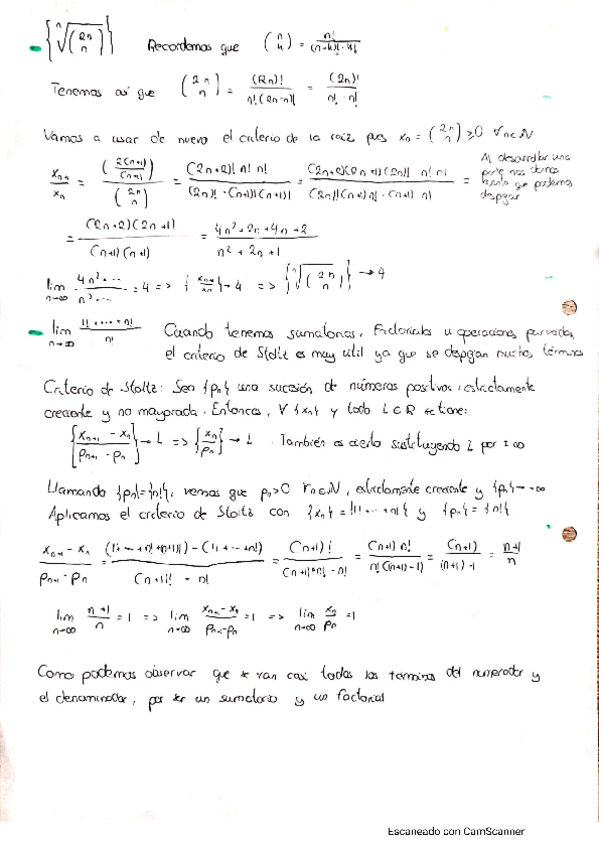 {ⁿ√(2n n)} Recordemos que (n k) = n!/((n-k)!·k!)
Tenemos así que (2n n) = (2n)!/(n!(2n-n)!) = (2n)!/(n!·n!)
Vamos a usar de nuevo el criterio de la raíz pues xₙ = (2n n) ≥ 0 ∀n∈N
xₙ₊₁/xₙ = (2(n+1) (n+1))/(2n n) = ((2n+2)! n! n!)/((2n)!·(n+1)!(n+1)!) = ((2n+2)(2n+1)(2n)! n! n!)/((2n)!(n+1)n!·(n+1) n!) =
Al desarrollar una
que podemos
despejar
= ((2n+2)(2n+1))/((n+1)(n+1)) = (4n²+2n+4n+2)/(n²+2n+1)
lim n→∞ (4n²...)/(n²...) = 4 => {xₙ₊₁/xₙ} → 4 => {ⁿ√(2n n)} → 4
lim n→∞ (1!+...+n!)/n! Cuando tenemos sumatorias, factoriales u operaciones
el criterio de Stoltz es muy util ya que se despejan muchos términos
Criterio de Stoltz: Sea {pₙ} una sucesión de números positivos, estrictamente
creciente y no mayorada. Entonces, ∀ {xₙ} y todo L∈R se tiene:
{(xₙ₊₁ - xₙ)/(pₙ₊₁ - pₙ)} → L => {xₙ/pₙ} → L. También es cierto sustituyendo L por ±∞
Llamando {pₙ}={n!}, vemos que pₙ>0 ∀n∈N, estrictamente creciente y {pₙ}→+∞
Aplicamos el criterio de Stoltz con {xₙ} = {1!+...+n!} y {pₙ} = {n!}
(xₙ₊₁ - xₙ)/(pₙ₊₁ - pₙ) = ((1!+...+n!+(n+1)!) - (1!+...+n!))/((n+1)! - n!) = (n+1)!/((n+1)·n! - n!) = ((n+1) n!)/(n!((n+1)-1)) = (n+1)/((n+1)-1) = (n+1)/n
lim n→∞ (n+1)/n = 1 => lim n→∞ (xₙ₊₁-xₙ)/(pₙ₊₁-pₙ) = 1 => lim n→∞ xₙ/pₙ = 1
Como podemos observar que se van casi todos los terminos del numerador y
el denominador, por ser un sumatorio y un factorial
Escaneado con CamScanner